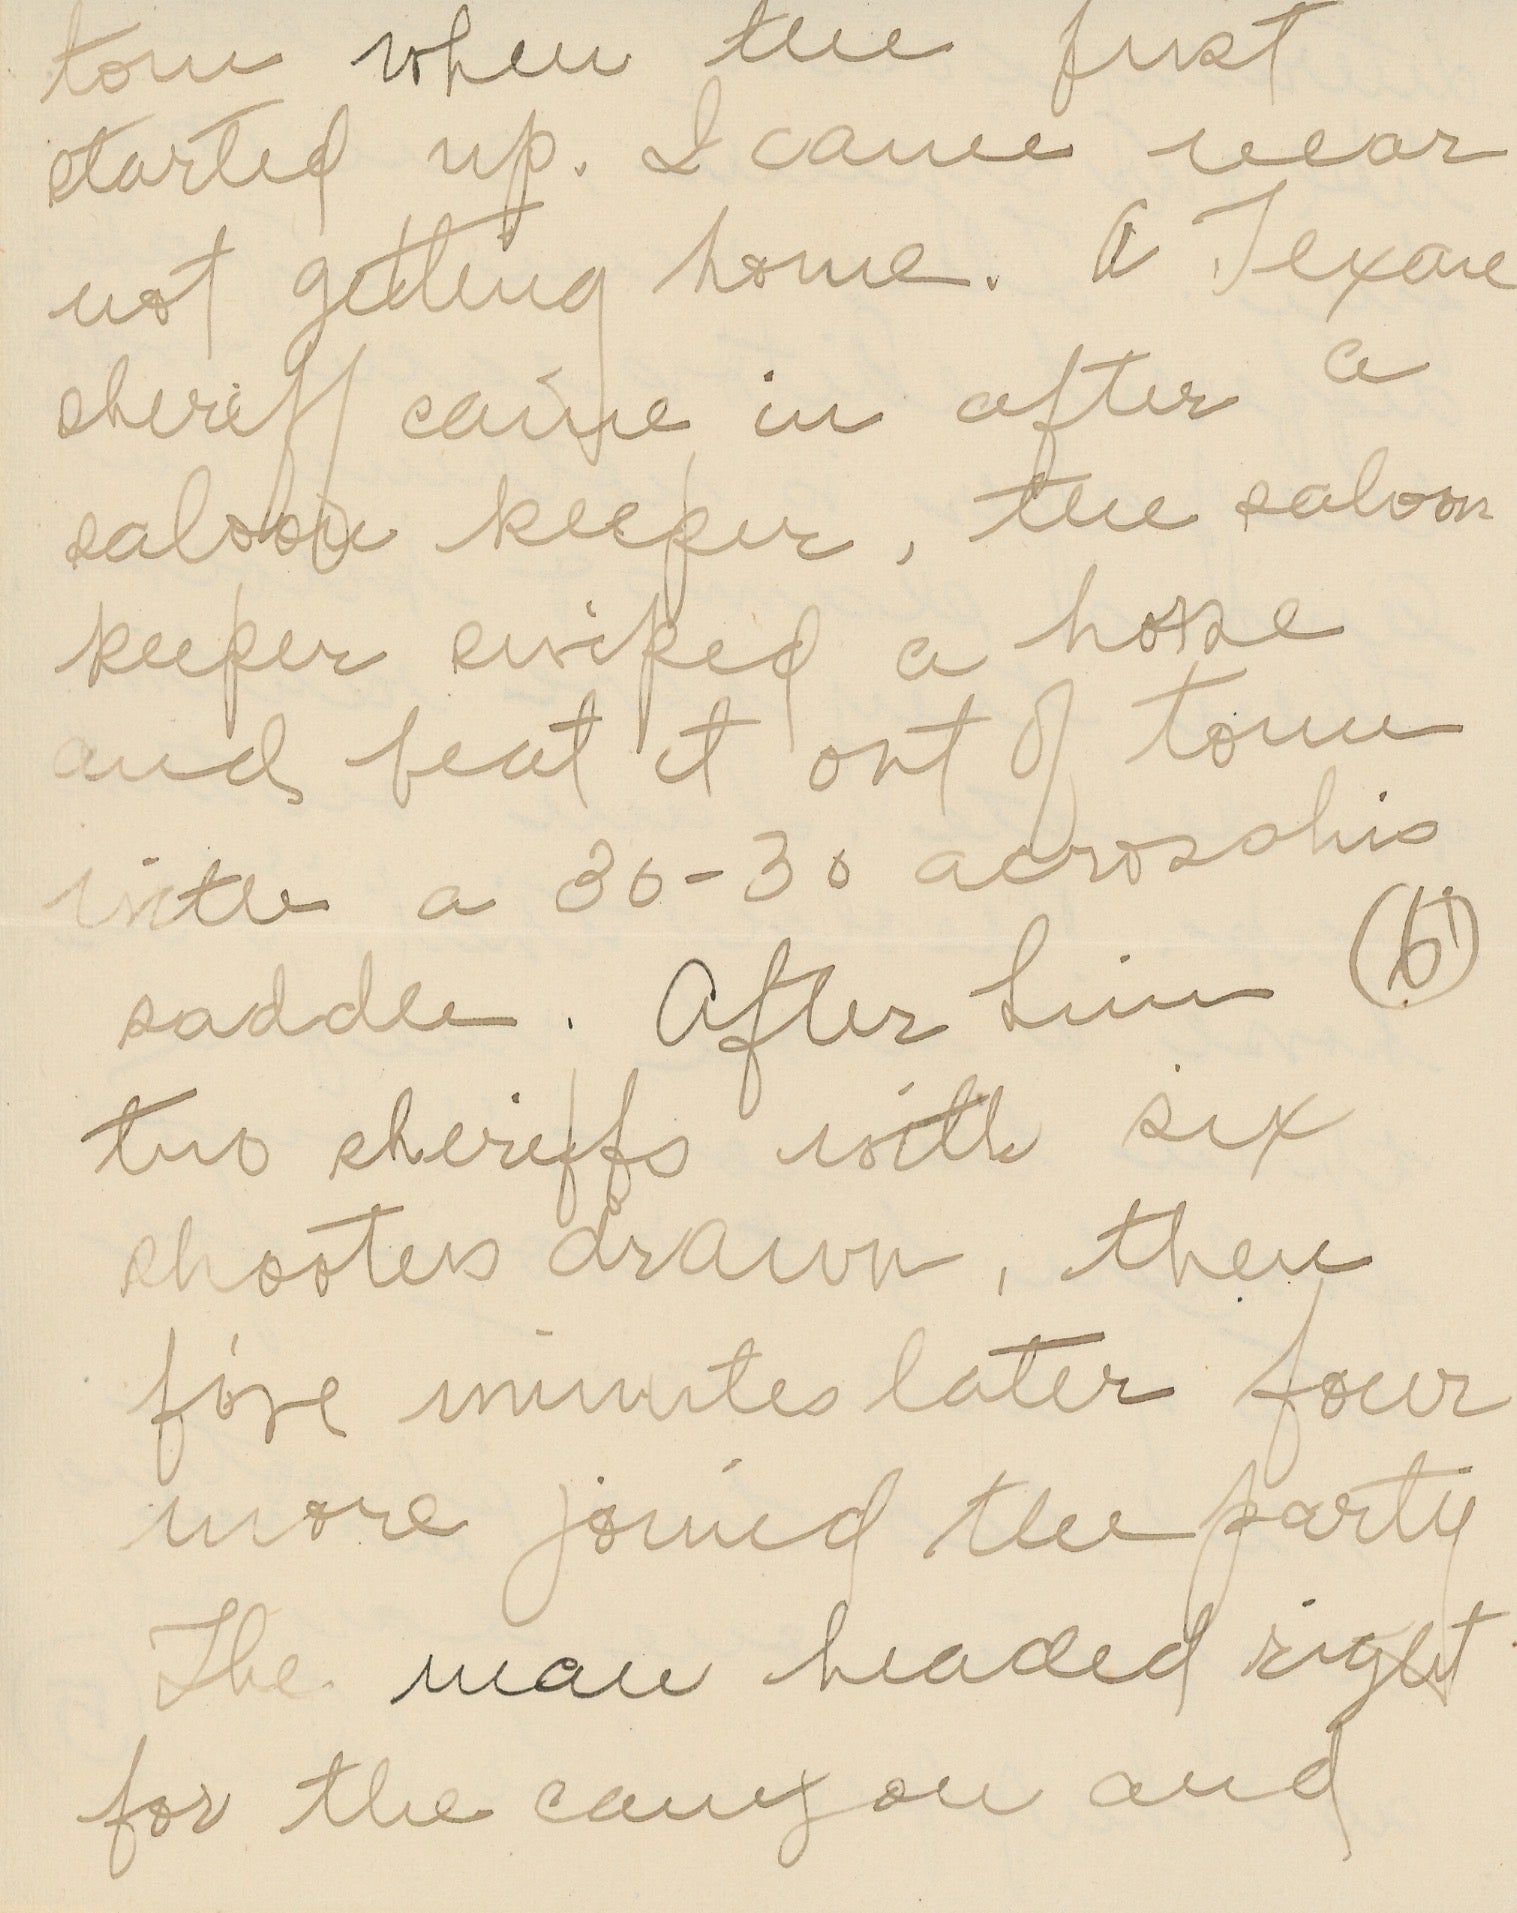 town when the fust
started up. I came near
not getting home. A Texan
sheriff came in after a
saloon keeper, the saloon
keeper swiped a horse
and beat it out of town
with a 30-30 across his
saddle. After him (6)
two sheriffs with six
shooters drawn, then
five minutes later four
more joined the party
The man headed right
for the canyon and